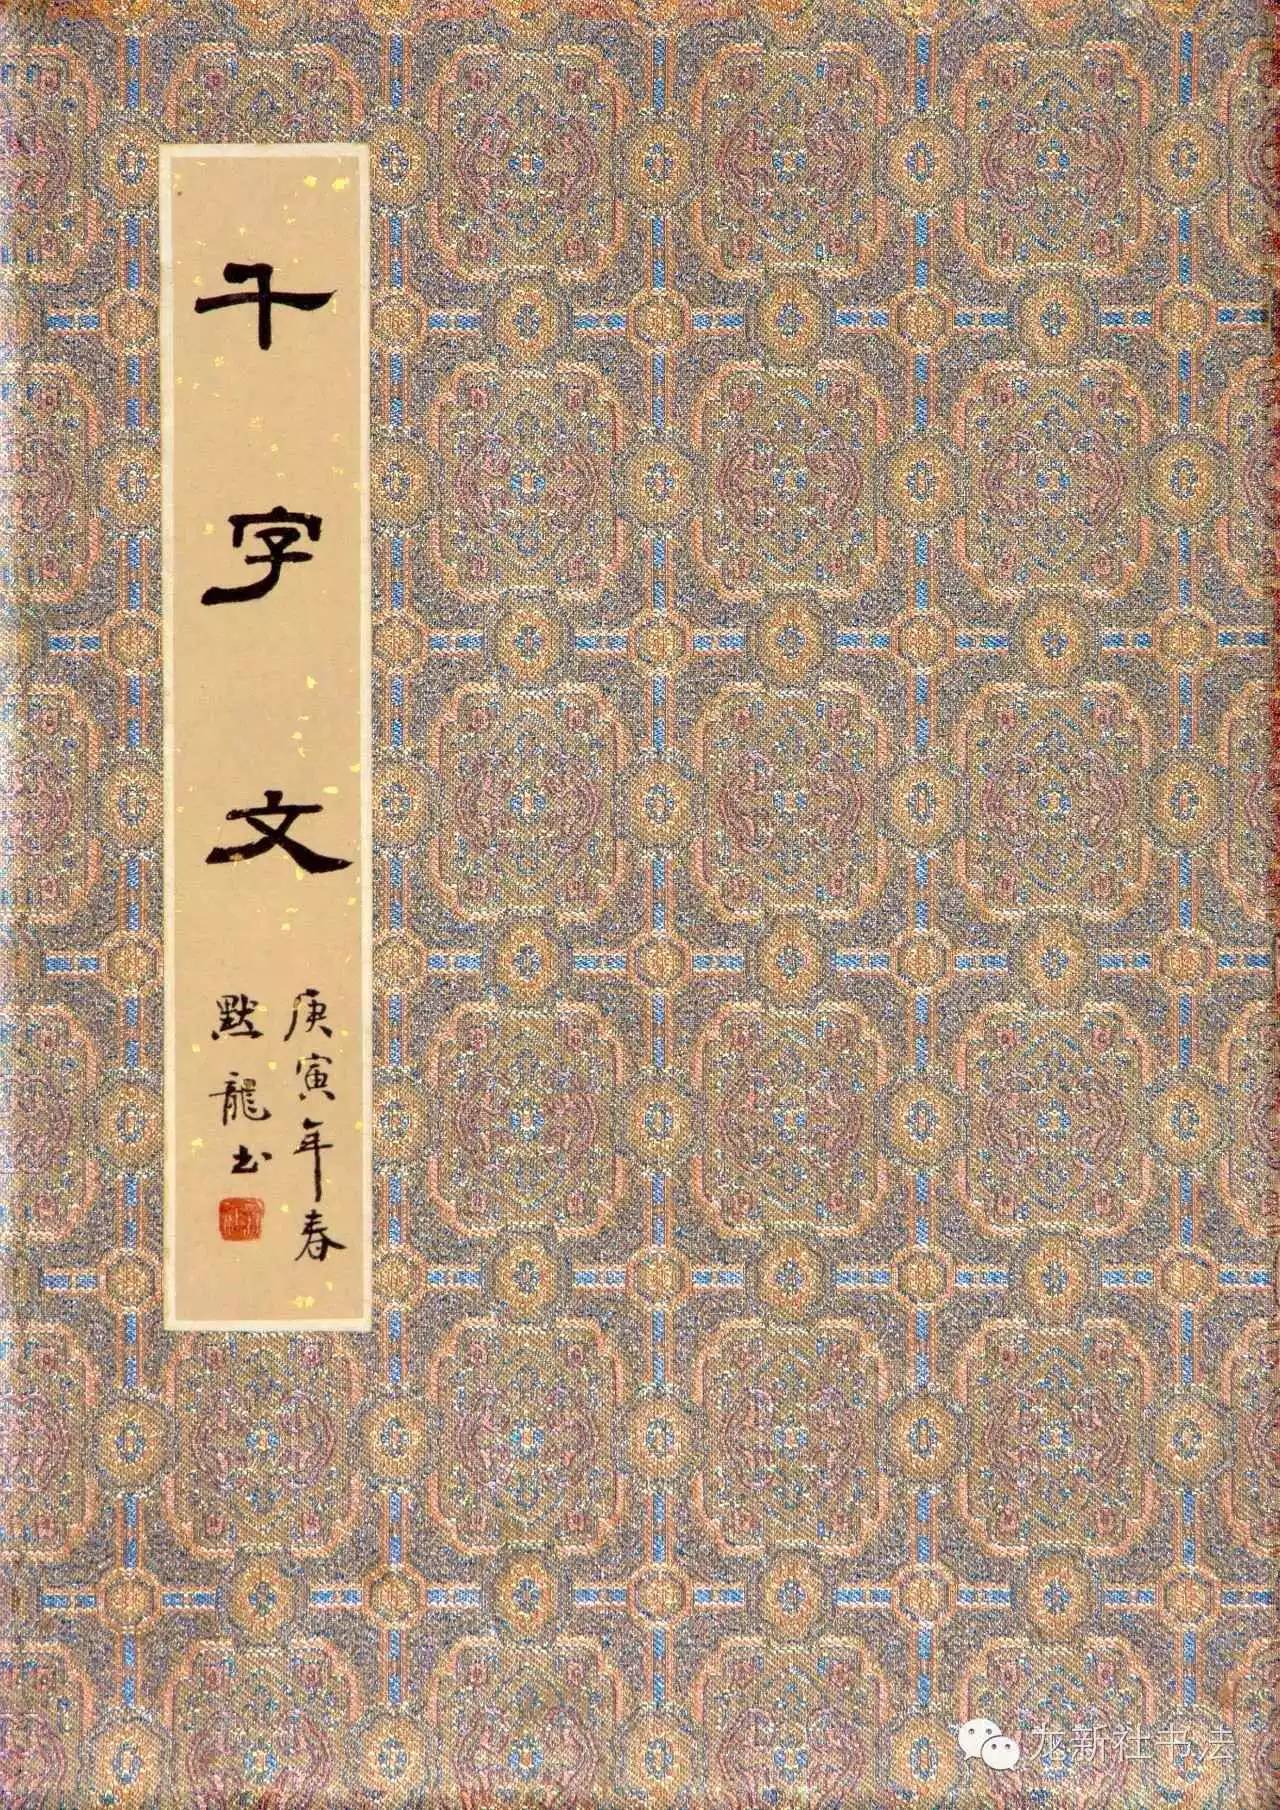 千字文
庚寅年春
默龍书
龙新社书法